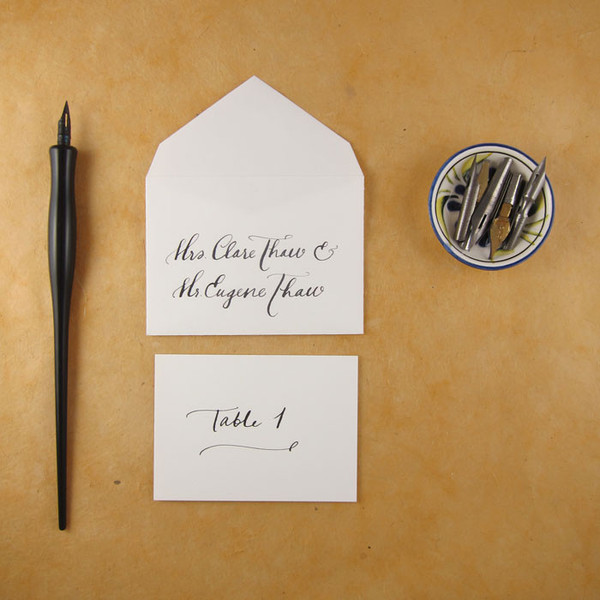 Mrs. Clare Thaw &
Mr Eugene Thaw
Table 1